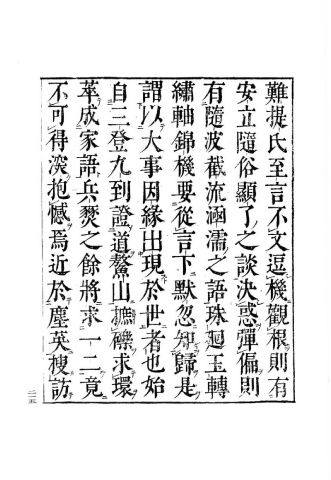 難提氏至言不文逗機觀根則有
安立隨俗顯了之談決惑彈偏則
有隨波截流涵濡之語珠迴玉轉
繡軸錦機要從言下默忽知歸是
謂以大事因緣出現於世者也始
自三登九到證道鼇山礫求環
萃成家語兵燹之餘將求一二竟
不可得深抱憾焉近於塵英訪